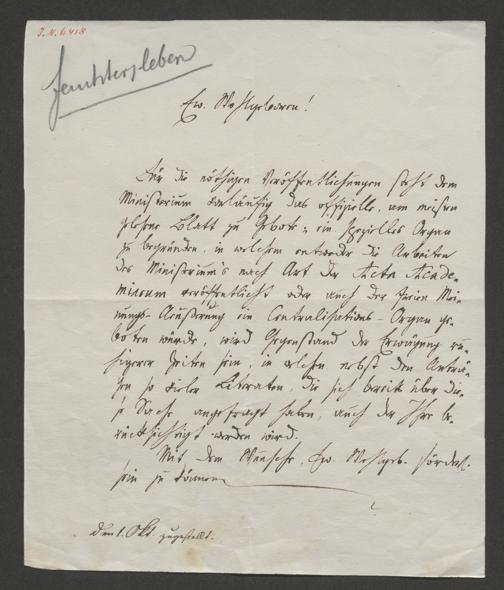 J.N. 6418
Feuchtersleben
Ew. Wohlgeboren!
Für die nöthigen Veröffentlichungen steht dem
Ministerium vorläufig das offizielle, am meisten
gelesene Blatt zu Gebote; ein spezielles Organ
zu begründen, in welchem entweder die Arbeiten
des Ministerium's nach Art der Acta Acade-
miarum veröffentlicht oder auch der freien Mei-
nungs-Äußerung ein Centralisations-Organ ge-
boten würde, wird Gegenstand der Erwägung ru-
higerer Zeiten sein, in welchen nebst den Anträ-
gen so vieler Literaten, die sich bereits über die-
se Sache angefragt haben, auch der Ihre be-
rücksichtigt werden wird.
Mit dem Wunsche, Ew. Wohlgeb.
sein zu können
den 1. Okt. zugestellt.